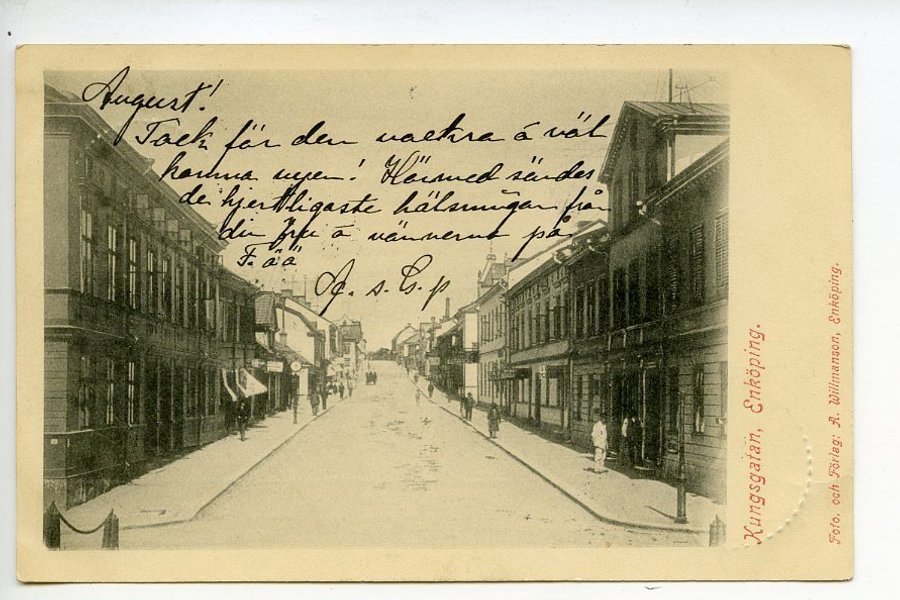 August!
Tack för den vackra å väl
komna vyen! Härmed sändes
de hjertligaste hälsningar från
din fru å vännerna på
F. öä
A. s. Gsp
Kungsgatan, Enköping.
Foto. och Förlag: A. Willmanson, Enköping.